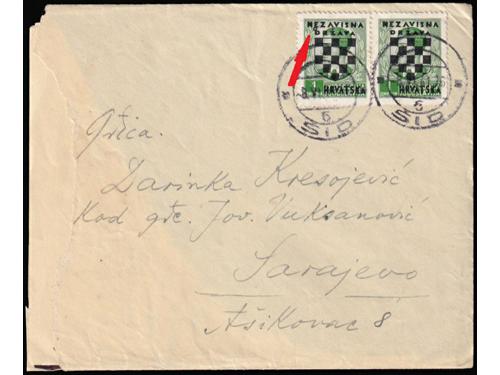 NEZAVISNA NEZAVISNA
DRŽAVA DRŽAVA
HRVATSKA HRVATSKA
6 6
ŠID ŠID
Gđica.
Darinka Kresojević
Kod gđe. Jov. Vuksanović
Sarajevo
Ašikovac 8